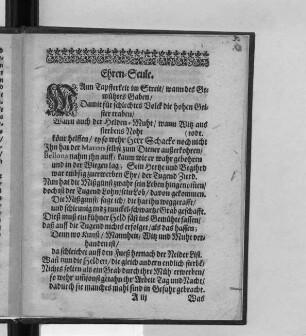 Ehren-Seule.
WAnn Tapfferkeit im Streit / wann des Ge-
müthes Gaben /
Damit für schlechtes Volck die hohen Gei-
ster traben /
Wann auch der Helden-Muht / wann Witz aus
sterbens Noht
könt helffen / so wehr Herr Schacke noch nicht
todt.
Ihn hat der Mavors selbst zum Diener außerkohren /
Bellona nahm ihn auff / kaum wie er wahr gebohren
und in der Wiegen lag; Sein Hertze und Begihrd
war embsig zu erwerben Ehr / der Tugend Zierd.
Nun hat die Mißgunst zwahr sein Leben hingenommen /
doch ist der Tugend Lohn / sein Lob / davon gekommen.
Die Mißgunst sage ich / die ihn hinweggerafft /
und schleunig ins dunckel-schwartze Grab geschafft.
Dieß muß ein kühner Held fäst ins Gemühte fassen /
daß auff die Tugend nichts erfolget / als das hassen;
Denn wo Kunst / Mannheit / Witz und Muht ver-
handen ist /
da schleichet auff den Fueß hernach der Neider List.
Wañ nun die Helden / die gleich andern endlich sterben /
Nichts solten als ein Grab durch ihr Müh erwerben /
so wehr umsonst gethan ihr Arbeit Tag und Nacht /
dadurch sie manches mahl sind in Gefahr gebracht.
A iij
Was